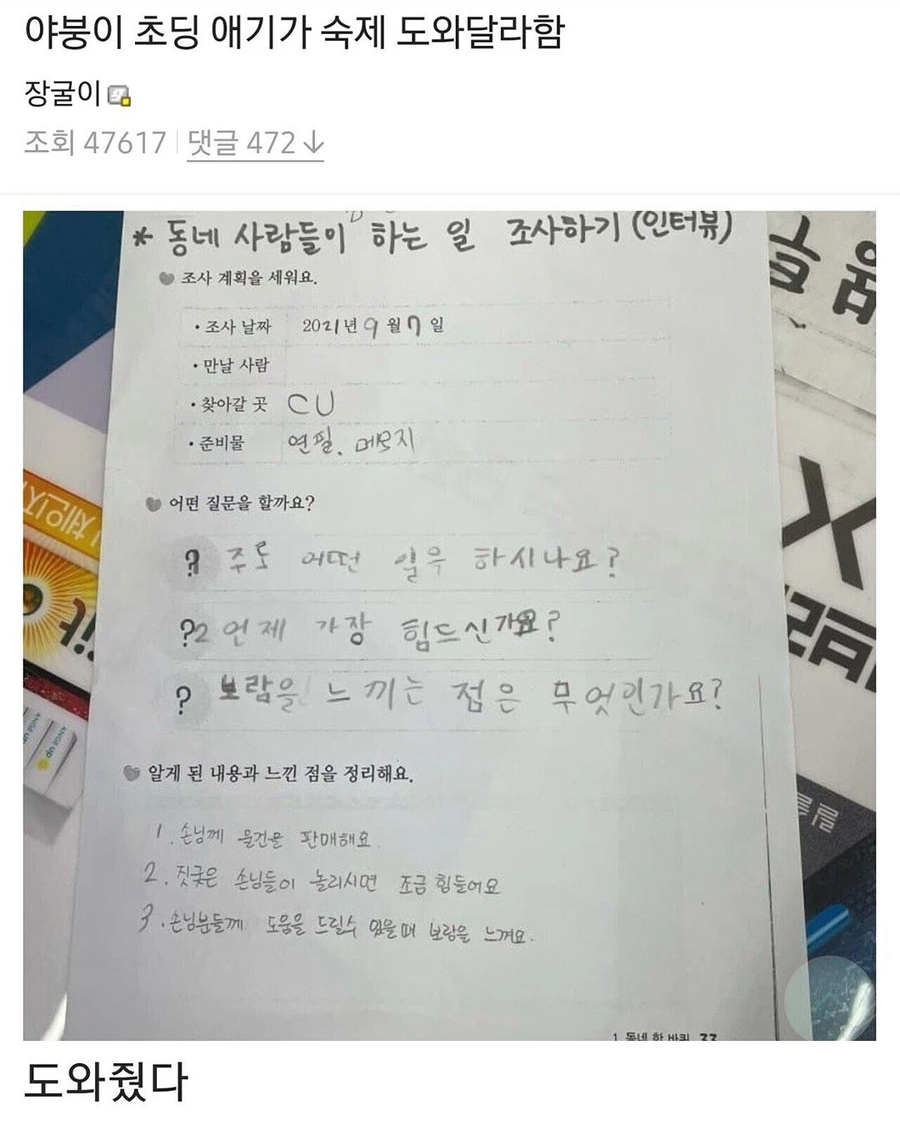 야붕이 초딩 애기가 숙제 도와달라함
장굴이
조회 47617 | 댓글 472↓
* 동네 사람들이 하는 일 조사하기 (인터뷰)
조사 계획을 세워요.
• 조사 날짜 2021년 9월 7일
• 만날 사람
• 찾아갈 곳 CU
• 준비물 연필, 메모지
어떤 질문을 할까요?
? 주로 어떤 일을 하시나요?
?2 언제 가장 힘드신가요?
? 보람을 느끼는 점은 무엇인가요?
알게 된 내용과 느낀 점을 정리해요.
1. 손님께 물건을 판매해요
2. 짓궂은 손님들이 놀리시면 조금 힘들어요
3. 손님분들께 도움을 드릴수 있을때 보람을 느껴요.
1. 동네 한 바퀴 33
도와줬다